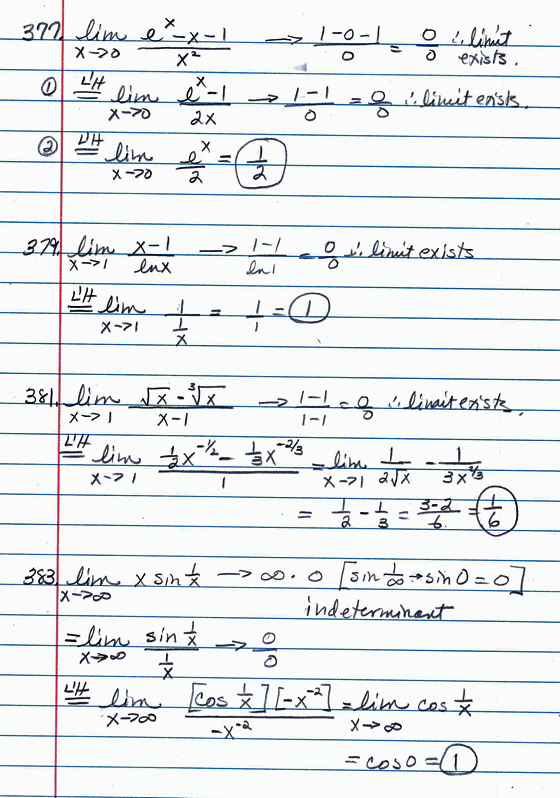 377. lim x→0 (e^x - x - 1)/x² → (1-0-1)/0 = 0/0 ∴ limit exists.
① L'H= lim x→0 (e^x - 1)/2x → (1-1)/0 = 0/0 ∴ limit exists.
② L'H= lim x→0 e^x/2 = 1/2
379. lim x→1 (x-1)/ln x → (1-1)/ln 1 = 0/0 ∴ limit exists
L'H= lim x→1 1/(1/x) = 1/1 = 1
381. lim x→1 (√x - ³√x)/(x-1) → (1-1)/(1-1) = 0/0 ∴ limit exists.
L'H= lim x→1 (½x^(-1/2) - ⅓x^(-2/3))/1 = lim x→1 1/(2√x) - 1/(3x^(2/3))
= 1/2 - 1/3 = (3-2)/6 = 1/6
383. lim x→∞ x sin 1/x → ∞ · 0 [sin 1/∞ → sin 0 = 0]
indeterminant
= lim x→∞ (sin 1/x)/(1/x) → 0/0
L'H= lim x→∞ [cos 1/x][-x^-2]/(-x^-2) = lim x→∞ cos 1/x
= cos 0 = 1